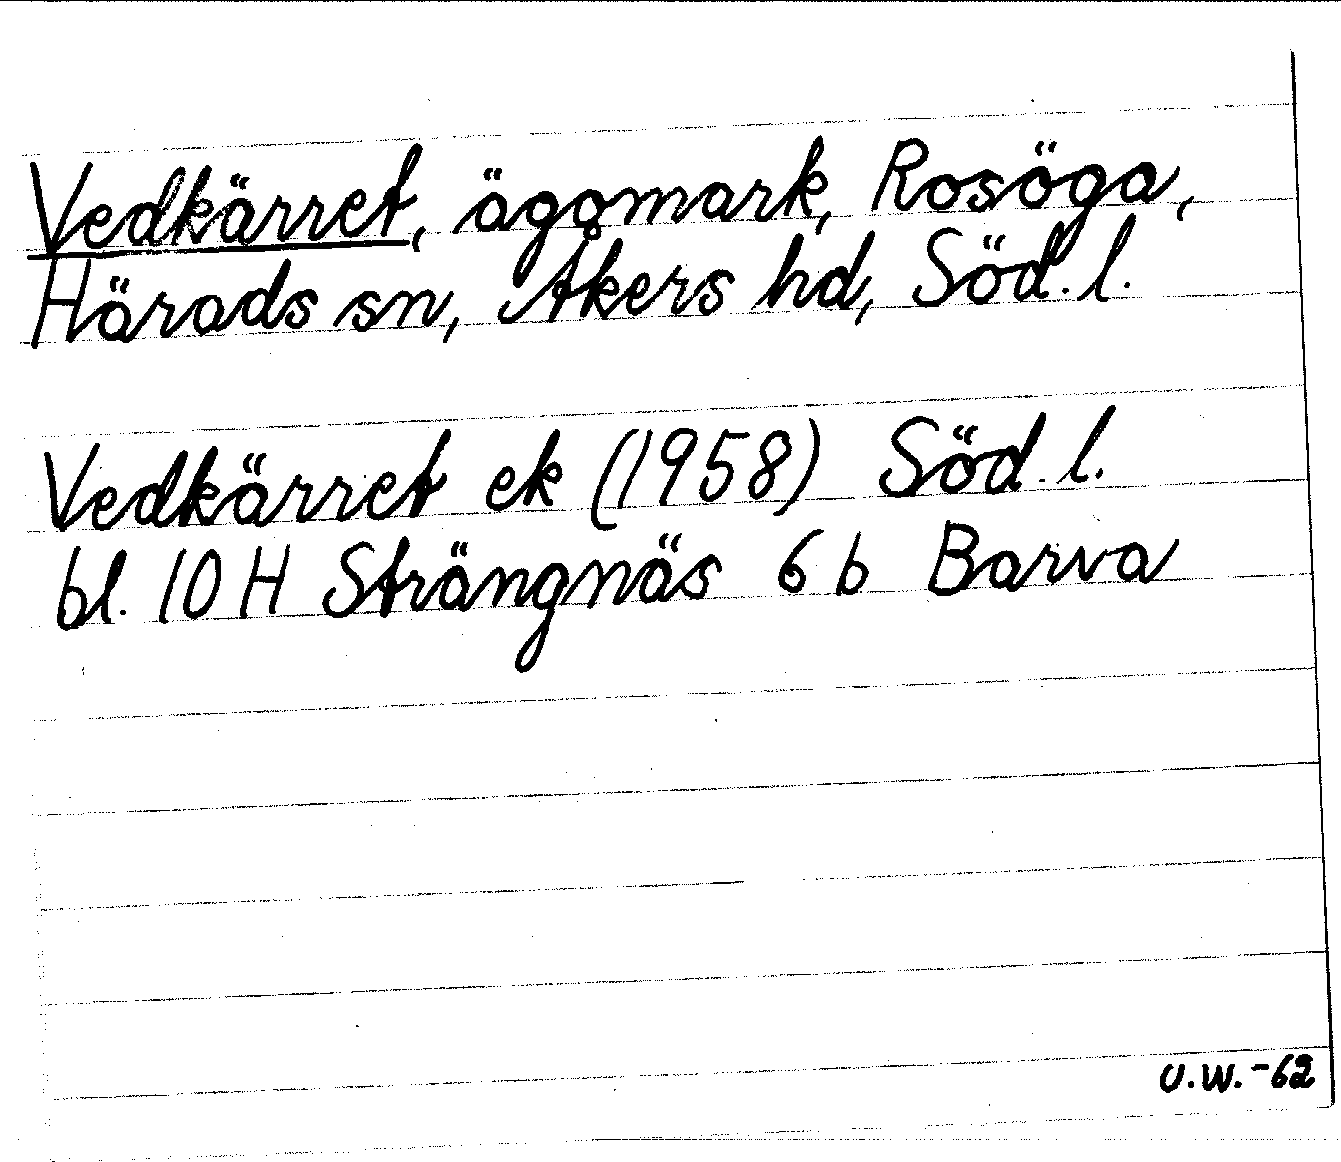 Vedkärret, ägomark, Rosöga,
Härads sn, Åkers hd, Söd. l.
Vedkärret ek (1958) Söd. l.
bl. 10 H Strängnäs 6 b Barva
U.W.-62